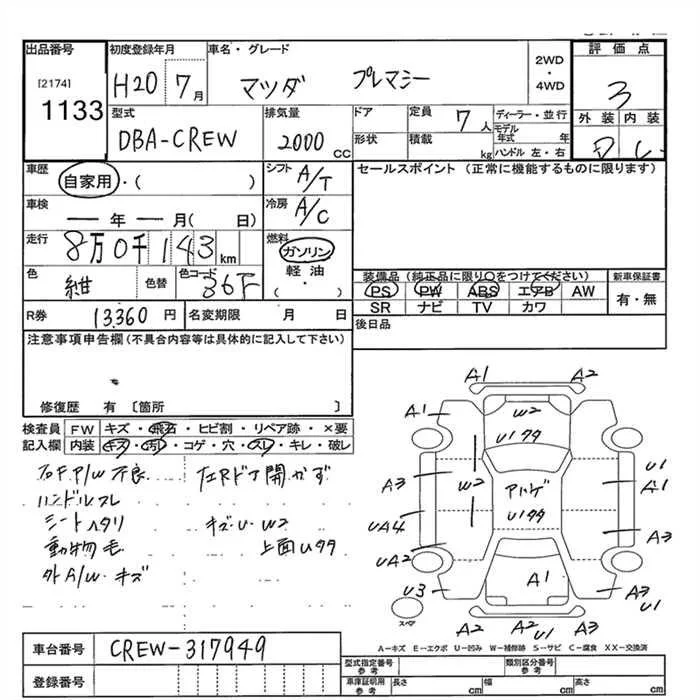 出品番号 初度登録年月 車名・グレード 2WD・4WD 評価点
[2174]
1133 H20 7月 マツダ プレマシー 3
型式 排気量 ドア 定員 7人 ディーラー・並行 外装 内装
DBA-CREW 2000cc 形状 積載 kg モデル年式 年 ハンドル 左・右 D
車歴 シフト セールスポイント (正常に機能するものに限ります)
自家用・( ) A/T
車検 ー年ー月( 日) 冷房 A/C
走行 8万0千143km 燃料 ガソリン
軽油
・
( )
色 紺 色替 色コード 36F 装備品(純正品に限り○をつけてください) 新車保証書
PS PW ABS エアB AW 有・無
SR ナビ TV カワ
R券 13,360円 名変期限 月 日 後日品
注意事項申告欄(不具合内容等は具体的に記入して下さい)
修復歴 有 [箇所 ]
検査員 FW キズ・飛石・ヒビ割・リペア跡・×要
記入欄 内装 キズ・汚れ・コゲ・穴・スレ・キレ・破レ
右F P/W 不良 左Rドア開かず
ハンドルスレ
シートハタリ キズ・U・W2
動物毛 上面Uタタ
外A/W・キズ
A1 A2
A1 W2 A3
Uタタ
A3 W2 アハゲ U1 A1
Uタタ
UA4 A3
UA2
U3 A1 A3 U1
スペア A2 A2 U1
A-キズ E-エクボ U-凹み W-補修跡 S-サビ C-腐食 XX-交換済
車台番号 CREW-317949
型式指定番号参考 類別区分番号参考
登録番号 車庫証明用参考 長さ cm 幅 cm 高さ cm